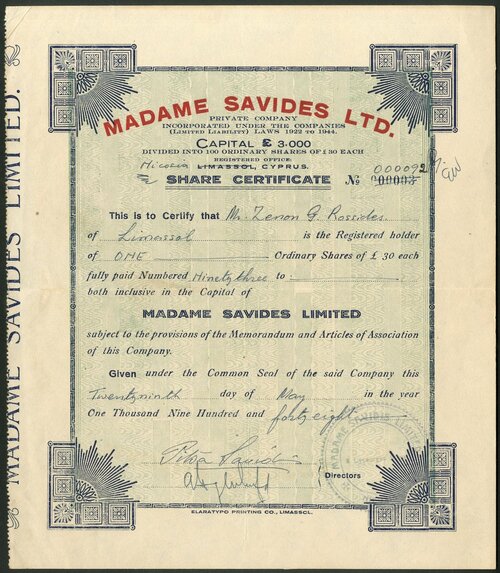 MADAME SAVIDES LIMITED.
MADAME SAVIDES LTD.
PRIVATE COMPANY
INCORPORATED UNDER THE COMPANIES
(LIMITED LIABILITY) LAWS 1922 TO 1944.
CAPITAL £ 3.000
DIVIDED INTO 100 ORDINARY SHARES OF £30 EACH
REGISTERED OFFICE:
Nicosia LIMASSOL, CYPRUS.
SHARE CERTIFICATE No 000003
This is to Certify that Mr. Zenon G. Rossides
of Limassol is the Registered holder
of ONE Ordinary Shares of £ 30 each
fully paid Numbered Ninetythree to :
both inclusive in the Capital of
MADAME SAVIDES LIMITED
subject to the provisions of the Memorandum and Articles of Association
of this Company.
Given under the Common Seal of the said Company this
Twentyninth day of May in the year
One Thousand Nine Hundred and forty eight
MADAME SAVIDES
Directors
ELARATYPO PRINTING CO., LIMASSOL.